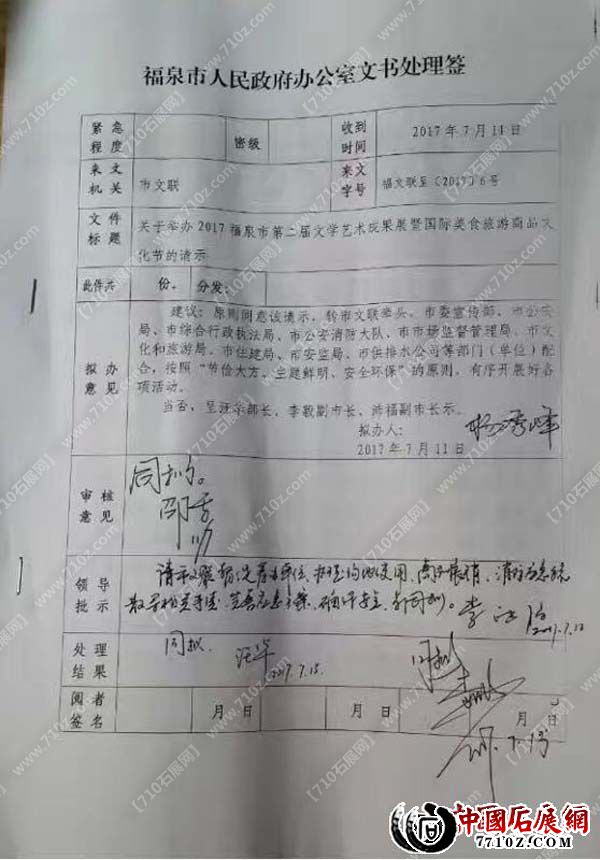 福泉市人民政府办公室文书处理签
紧急程度 密级 收到时间 2017年7月11日
来文机关 市文联 来文字号 福文联呈〔2017〕6号
文件标题 关于举办2017福泉市第二届文学艺术成果展暨国际美食旅游商品文
化节的请示
此件共 份。 分发:
拟办意见
建议:原则同意该请示,转市文联牵头,市委宣传部、市公安
局、市综合行政执法局、市公安消防大队、市市场监督管理局、市文
化和旅游局、市住建局、市安监局、市供排水公司等部门(单位)配
合,按照“节俭大方、主题鲜明、安全环保”的原则,有序开展好各
项活动。
当否,呈汪华部长、李毅副市长、沛福副市长示。
拟办人:
2017年7月11日
审核意见 同拟。
领导批示
2017.7.12
处理结果 同拟. 汪华 2017.7.15. 同拟
阅者签名 月 日 月 日 月 日
【710石展网】www.710z.com
中國石展網
7710Z.COM